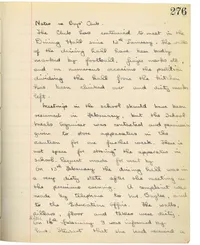 276
Notes re Boys' Club
The Club has continued to meet in the
Dining Hall since 10th January. The walls
of the dining hall have been badly
marked by football, finger marks etc,
and on numerous occasions the partition
dividing the hall from the kitchen
has been climbed over and dirty marks
left.
Meetings in the school should have been
resumed in February, but the School
was contacted and permission
given to store apparatus in the
for one further week. There is
no space for storing the apparatus in
school. Request made for unit by
On 13th February the dining hall was in
a very dirty state after the meeting on
the previous evening. A complaint was
made by telephone to and
to the Education Office. The walls,
pillars, floor and tables were dirty.
On 16th February I was informed by
that she had received a